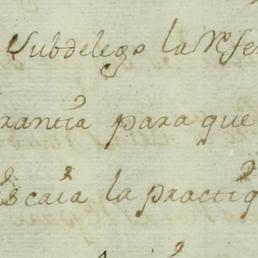 Subdelego la Refe
rantia para que
scaia la practiq